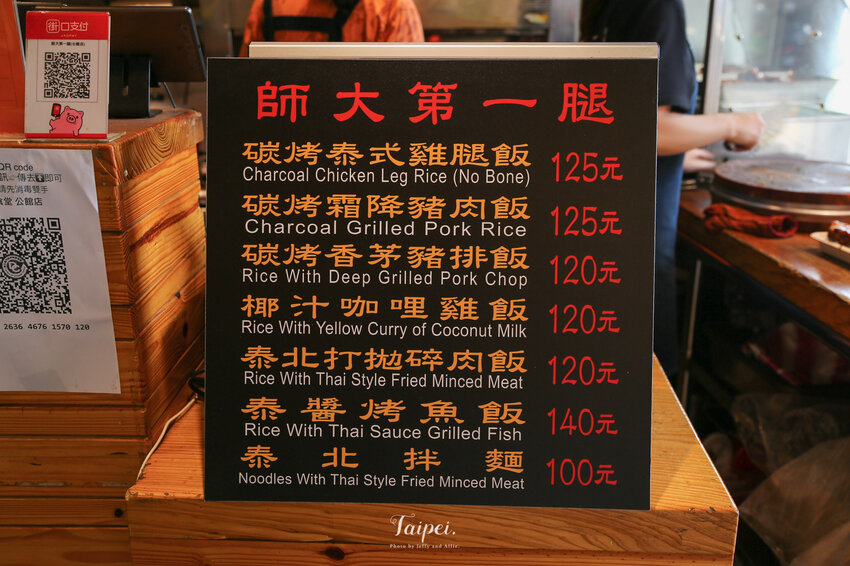 街口支付
JKOPAY
師大第一腿(公館店)
QR code
即可
請先消毒雙手
食堂 公館店
2636 4676 1570 120
師大第一腿
碳烤泰式雞腿飯 125元
Charcoal Chicken Leg Rice (No Bone)
碳烤霜降豬肉飯 125元
Charcoal Grilled Pork Rice
碳烤香茅豬排飯 120元
Rice With Deep Grilled Pork Chop
椰汁咖哩雞飯 120元
Rice With Yellow Curry of Coconut Milk
泰北打拋碎肉飯 120元
Rice With Thai Style Fried Minced Meat
泰醬烤魚飯 140元
Rice With Thai Sauce Grilled Fish
泰北拌麵 100元
Noodles With Thai Style Fried Minced Meat
Taipei.
Photo by Jeffy and Allie.